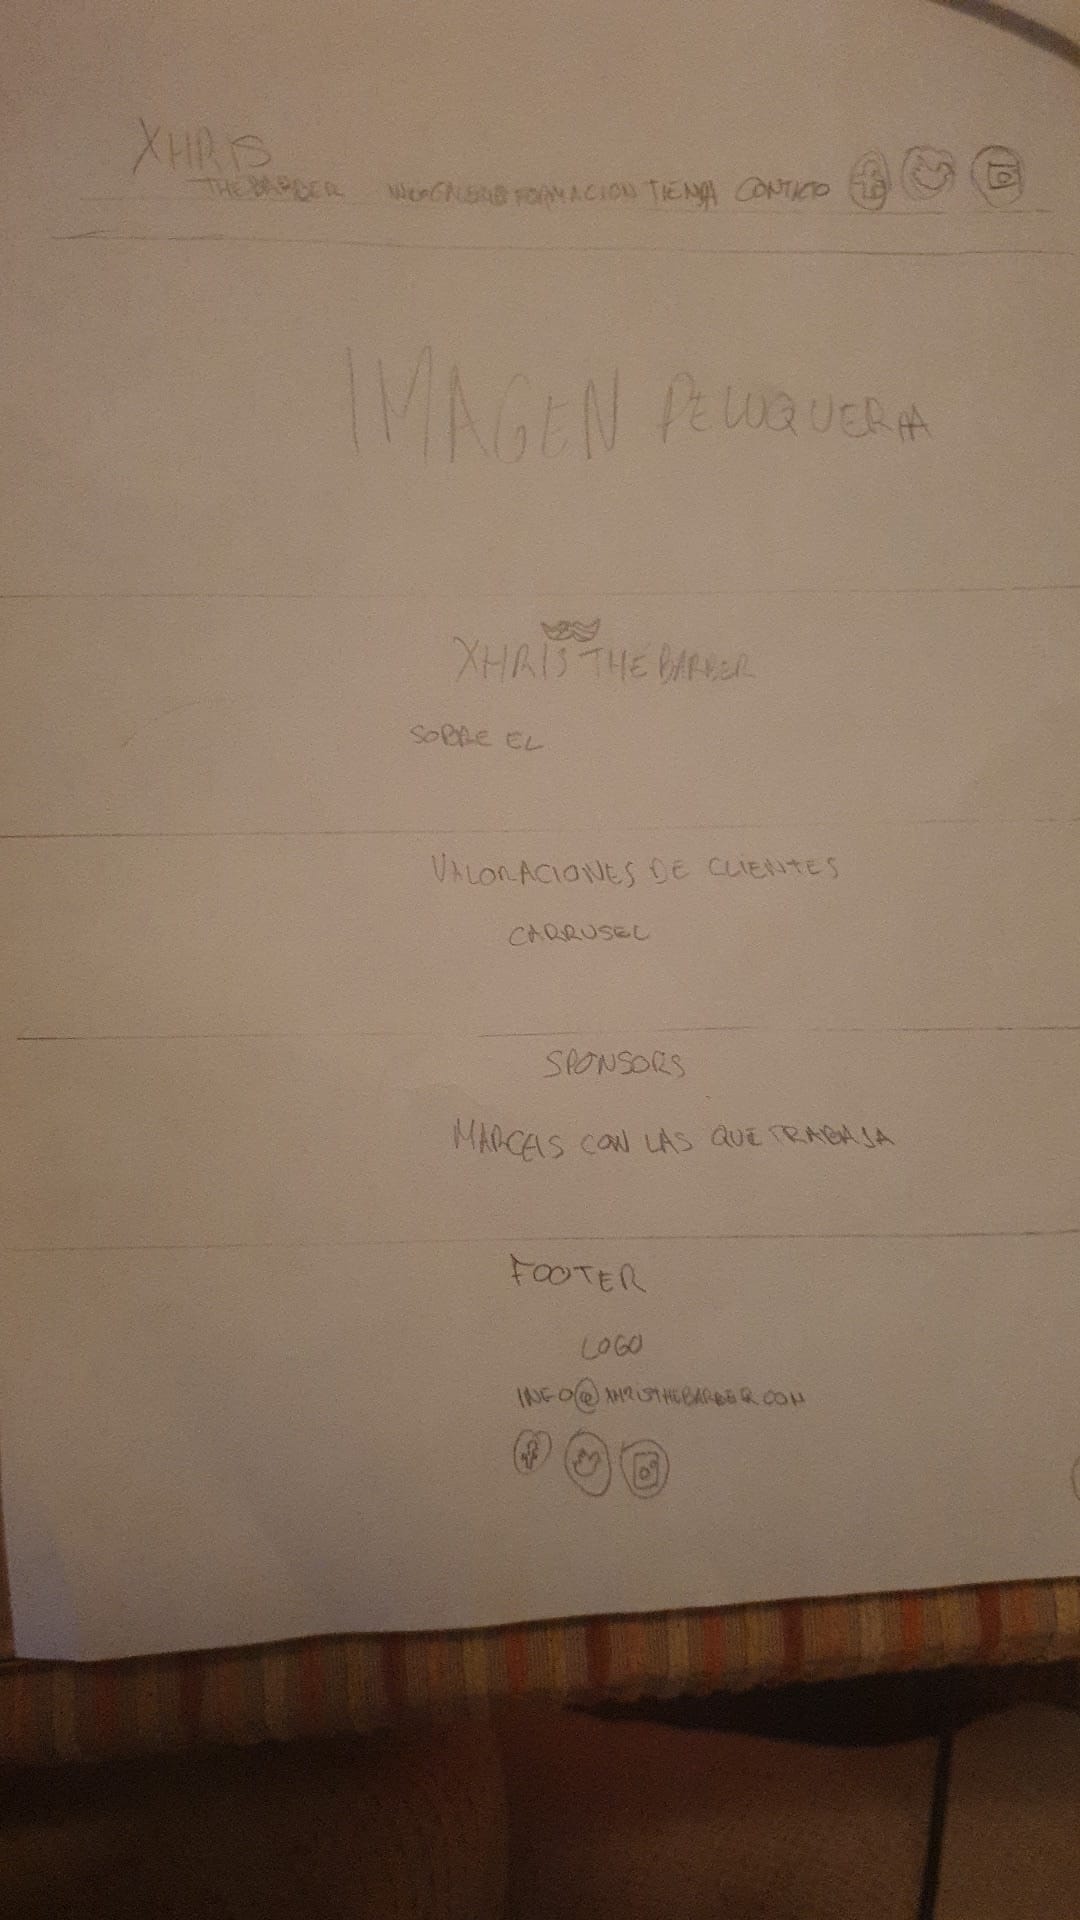 XHRIS
THE BARBER INICIO GALERIA FORMACION TIENDA CONTACTO
IMAGEN PELUQUERIA
XHRIS THE BARBER
SOBRE EL
VALORACIONES DE CLIENTES
CARRUSEL
SPONSORS
MARCAS CON LAS QUE TRABAJA
FOOTER
LOGO
INFO@XHRISTHEBARBER.COM